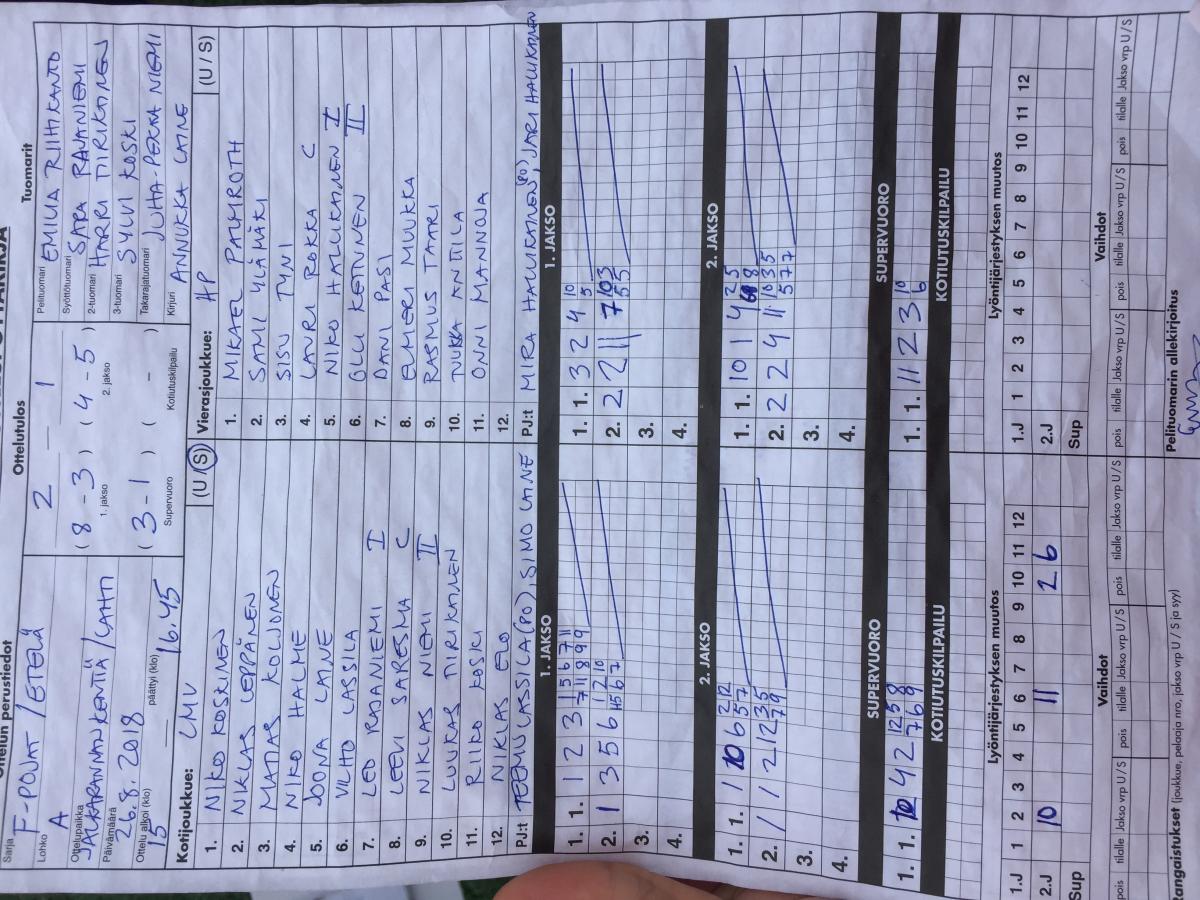 Ottelun perustiedot
Sarja
F-POJAT / ETELÄ
Lohko
A
Ottelupaikka
JALKARANNAN KENTTÄ / LAHTI
Päivämäärä
26.8.2018
Ottelu alkoi (klo) päättyi (klo)
15 16.45
Ottelutulos
2 — 1
( 8 - 3 ) ( 4 - 5 )
1. jakso 2. jakso
( 3 - 1 ) ( - )
Supervuoro Kotiutuskilpailu
Tuomarit
Pelituomari EMILIA RIIHIKANTO
Syöttötuomari SARA RAJANIEMI
2-tuomari HARRI TIRIKAINEN
3-tuomari SYLVI KOSKI
Takarajatuomari JUHA-PEKKA NIEMI
Kirjuri ANNUKKA LAINE
Kotijoukkue: LMV (U / S)
1. NIKO KOSKINEN
2. NIKLAS LEPPÄNEN
3. MATIAS KOLJONEN
4. NIKO HALME
5. JOONA LAINE
6. VILHO LASSILA
7. LEO RAJANIEMI I
8. LEEVI SARESMA C
9. NIKLAS NIEMI II
10. LUUKAS TIRIKAINEN
11. RIIKO KOSKI
12. NIKLAS ELO
PJ:t TEEMU LASSILA (PO), SIMO LAINE
Vierasjoukkue: HP (U / S)
1. MIKAEL PALMROTH
2. SAMI YLÄMÄKI
3. SISU TYNI
4. LAURI ROKKA C
5. NIKO HALLIKAINEN I
6. OLLI KETUNEN II
7. DANI PASI
8. ELMERI MUUKKA
9. RASMUS TAARI
10. JUKKA ANTTILA
11. ONNI MANNOJA
12.
PJ:t MIRA HALLIKAINEN (PO), JARI HALLIKAINEN
1. JAKSO 1. JAKSO
1. 1. 1 2 3 1 5 6 7 11
7 11 8 9 9
2. 1 3 5 6 1 2 10
6 7
3.
4.
1. 1. 3 2 4 10
5
2. 2 2 11 7 10 3
5 5
3.
4.
2. JAKSO 2. JAKSO
1. 1. 1 10 6 2 12
5 7
2. 1 1 2 12 3 5
7 9
3.
4.
1. 1. 10 1 4 2 5
8
2. 2 2 4 11 10 3 5
5 7 7
3.
4.
SUPERVUORO SUPERVUORO
1. 1. 10 4 2 12 5 8
7 6 9
1. 1. 11 2 3 10
6
KOTIUTUSKILPAILU KOTIUTUSKILPAILU
Lyöntijärjestyksen muutos Lyöntijärjestyksen muutos
1.J 1 2 3 4 5 6 7 8 9 10 11 12
2.J 10 11 2 6
Sup
1.J 1 2 3 4 5 6 7 8 9 10 11 12
2.J
Sup
Vaihdot Vaihdot
pois tilalle Jakso vrp U / S pois tilalle Jakso vrp U / S pois tilalle Jakso vrp U / S
pois tilalle Jakso vrp U / S pois tilalle Jakso vrp U / S pois tilalle Jakso vrp U / S
Rangaistukset (joukkue, pelaaja nro, jakso vrp U / S ja syy)
Pelituomarin allekirjoitus